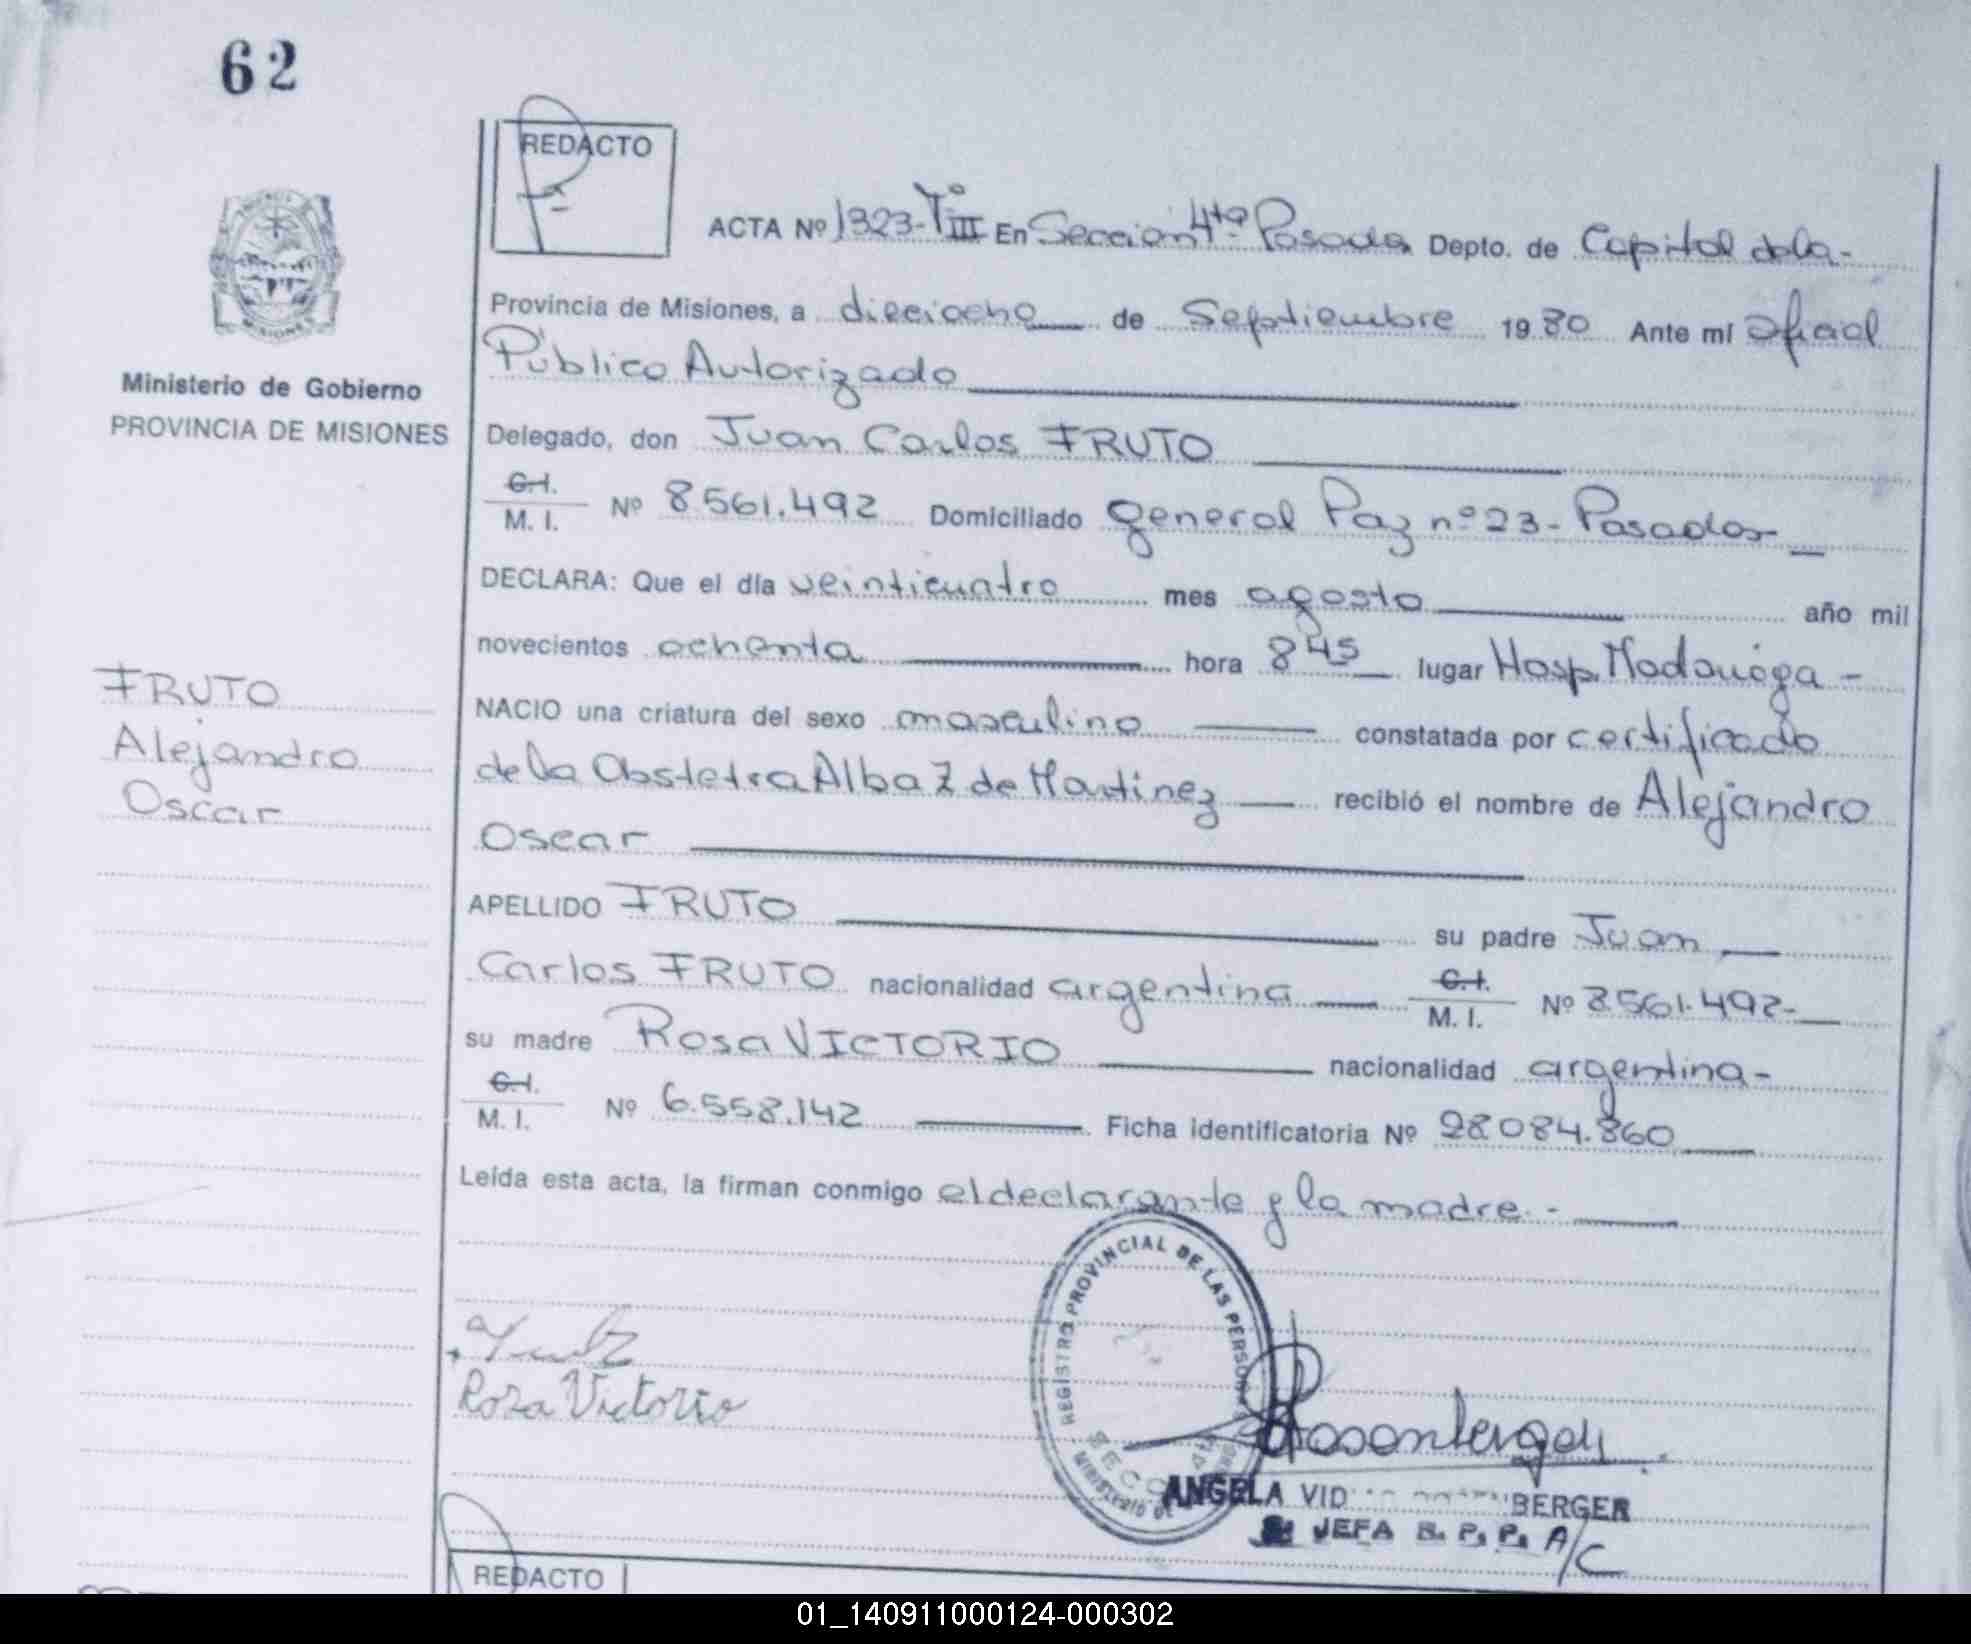 62
REDACTO
ACTA Nº 1323-Tº III En Sección 4ta Posadas Depto. de Capital dela-
Provincia de Misiones, a dieciocho de Septiembre 19 80 Ante mí Oficial
Público Autorizado
Ministerio de Gobierno
PROVINCIA DE MISIONES
Delegado, don Juan Carlos FRUTO
C.I.
M. I. Nº 8561.492 Domiciliado general Paz nº 23- Posadas
DECLARA: Que el día veinticuatro mes agosto año mil
novecientos ochenta hora 8 45 lugar Hosp. Madariaga -
FRUTO
Alejandro
Oscar
NACIO una criatura del sexo masculino constatada por certificado
de la Obstetra Alba Z de Martinez recibió el nombre de Alejandro
Oscar
APELLIDO FRUTO su padre Juan
Carlos FRUTO nacionalidad argentina C.I. M. I. Nº 8561.492-
su madre Rosa VICTORIO nacionalidad argentina-
C.I.
M. I. Nº 6.558.142 Ficha identificatoria Nº 28084.860
Leída esta acta, la firman conmigo el declarante y la madre.-
REGISTRO PROVINCIAL DE LAS PERSON
Rosa Victorio
ANGELA VID BERGER
JEFA R. P. P. A/C
REDACTO
01_140911000124-000302